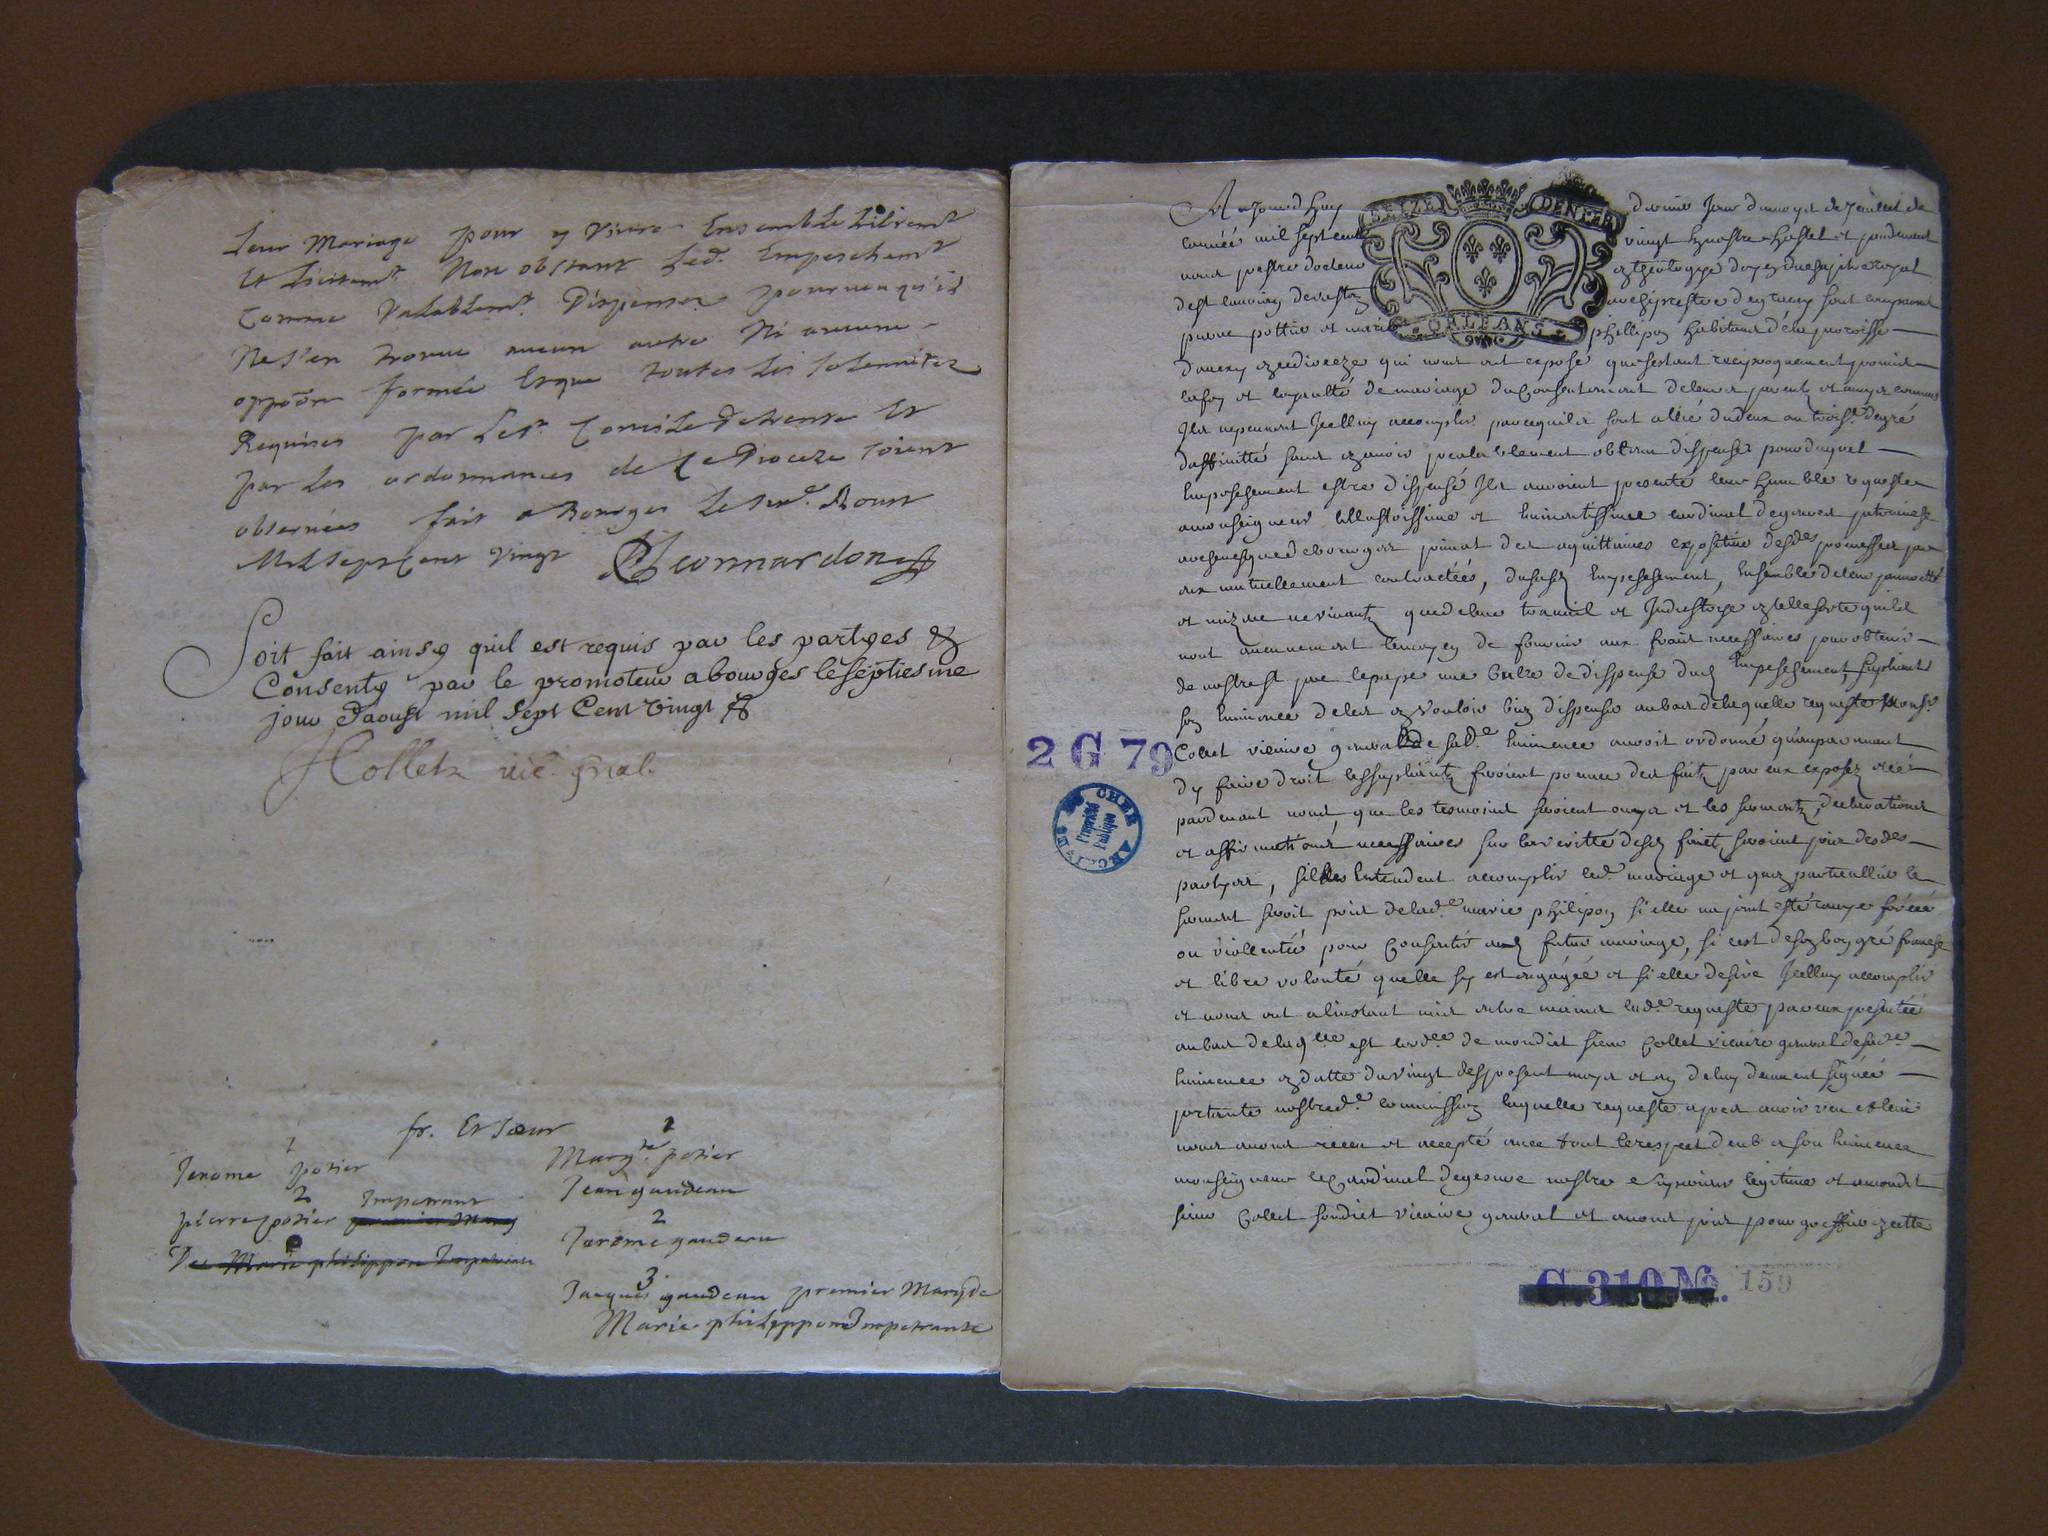 Leur Mariage pour y Vivre Ensemble Librem.t
Et Licitem.t Non obstant Led. Empeschem.t
Comme Valablem.t Dispensez pourveu qu'il
Ne s'en trouve aucun autre Ni aucune
oppôon formée Et que toutes les solemnitez
Requises par Le St. Concile de trente Et
par Les ordonnances de Ce Dioceze soient
observées fait a Bourges Le Aoust
Mil Sept Cent Vingt Leonnardon
Soit fait ainsy quil est requis par les partyes &
Consenty par le promoteur a bourges le septiesme
jour d'aoust mil Sept Cent Vingt &
Collet vic. gnal.
fr. Et Soeur
1
Jerome potier
2
pierre potier Impetrant
Marie philippon Impetrante
1
Marg.te potier
Jean gaudeau
2
Jerôme gaudeau
3
Jacques gaudeau premier Mary de
Marie philippon Impetrante
SEIZE DENIERS
ORLEANS
Aujourdhuy dernier Jour du moys de Jeuillet de
lannéé mil sept cent vingt
nous prestre docteur en theologye doyen du chapitre royal
archiprestre
pierre pottier et marie phillipon habitans de la paroisse
qui nous ont exposé questant reciproquement promis
la foy et loyaulté de mariage du Consentement de leurs parents et amys communs
Ils ne peuvent Icelluy accomplir parcequils sont allié du deux au trois.e degré
daffinitté sans en avoir prealablement obtenu dispense pour duquel
Empeschement estre dispensé Ils auroient presenté leur humble requeste
a monseigneur Illustrissime et Eminentissime cardinal de gesvres patriarche
archevesque de bourges primat des aquittaines expositive desd. promesses par
eux mutuellement contractéés, dususd Empeschement, Ensemble de leur pauvretté
et ne vivants que de leur travail et Industrye en telle sorte quils
nont aucunement le moyen de fournir aux frais necessaires pour obtenir
de nostre st pere le pape une bulle de dispense dud Empeschement, supliants
son Eminence de les en vouloir bien dispenser au bas de laquelle requeste Monsr.
2 G 79
Collet vicaire general de sad.e Eminence auroit ordonné quauparavant
dy faire droit les supliants feroient preuve des faits par eux exposez
pardevant nous, que les tesmoins seroient ouys et les serments, declarations
et affirmations necessaires sur la veritté desd faicts, seroient pris desdes
partyes, sils Entendent accomplir led. mariage et quen particullier le
serment seroit pris de lad.e marie philipon si elle na point esté forcéé
ou violentéé pour Consentir aud futur mariage, si cest de son bon gré franche
et libre volonté quelle sy est engagéé et si elle desire Icelluy accomplir
et nous ont a linstant mis entre mains lad.e requeste par eux presentéé
au bas de laqlle est lord.ce de mondit sieur Collet vicaire general de sad.e
Eminence en datte du vingt des present moys et an de luy deument signéé
portante nostred.e commission laquelle requeste apres avoir veu et leue
nous avons receu et accepté avec tout le respect deub a son Eminence
monseigneur le Cardinal de gesvre nostre superieur legitime et a mondit
sieur Collet sondict vicaire general et avons pris pour greffier
ARCHIVES DU CHER
Propriété
Publique
G. 310 No. 159